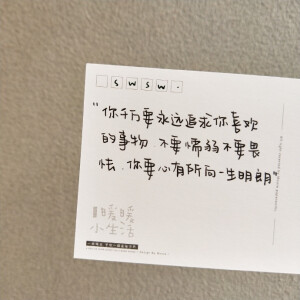 SWSW.
“你千万要永远追求你喜欢
的事物.不要懦弱不要畏
怯.你要心有所向一生明朗”
暖暖
小生活